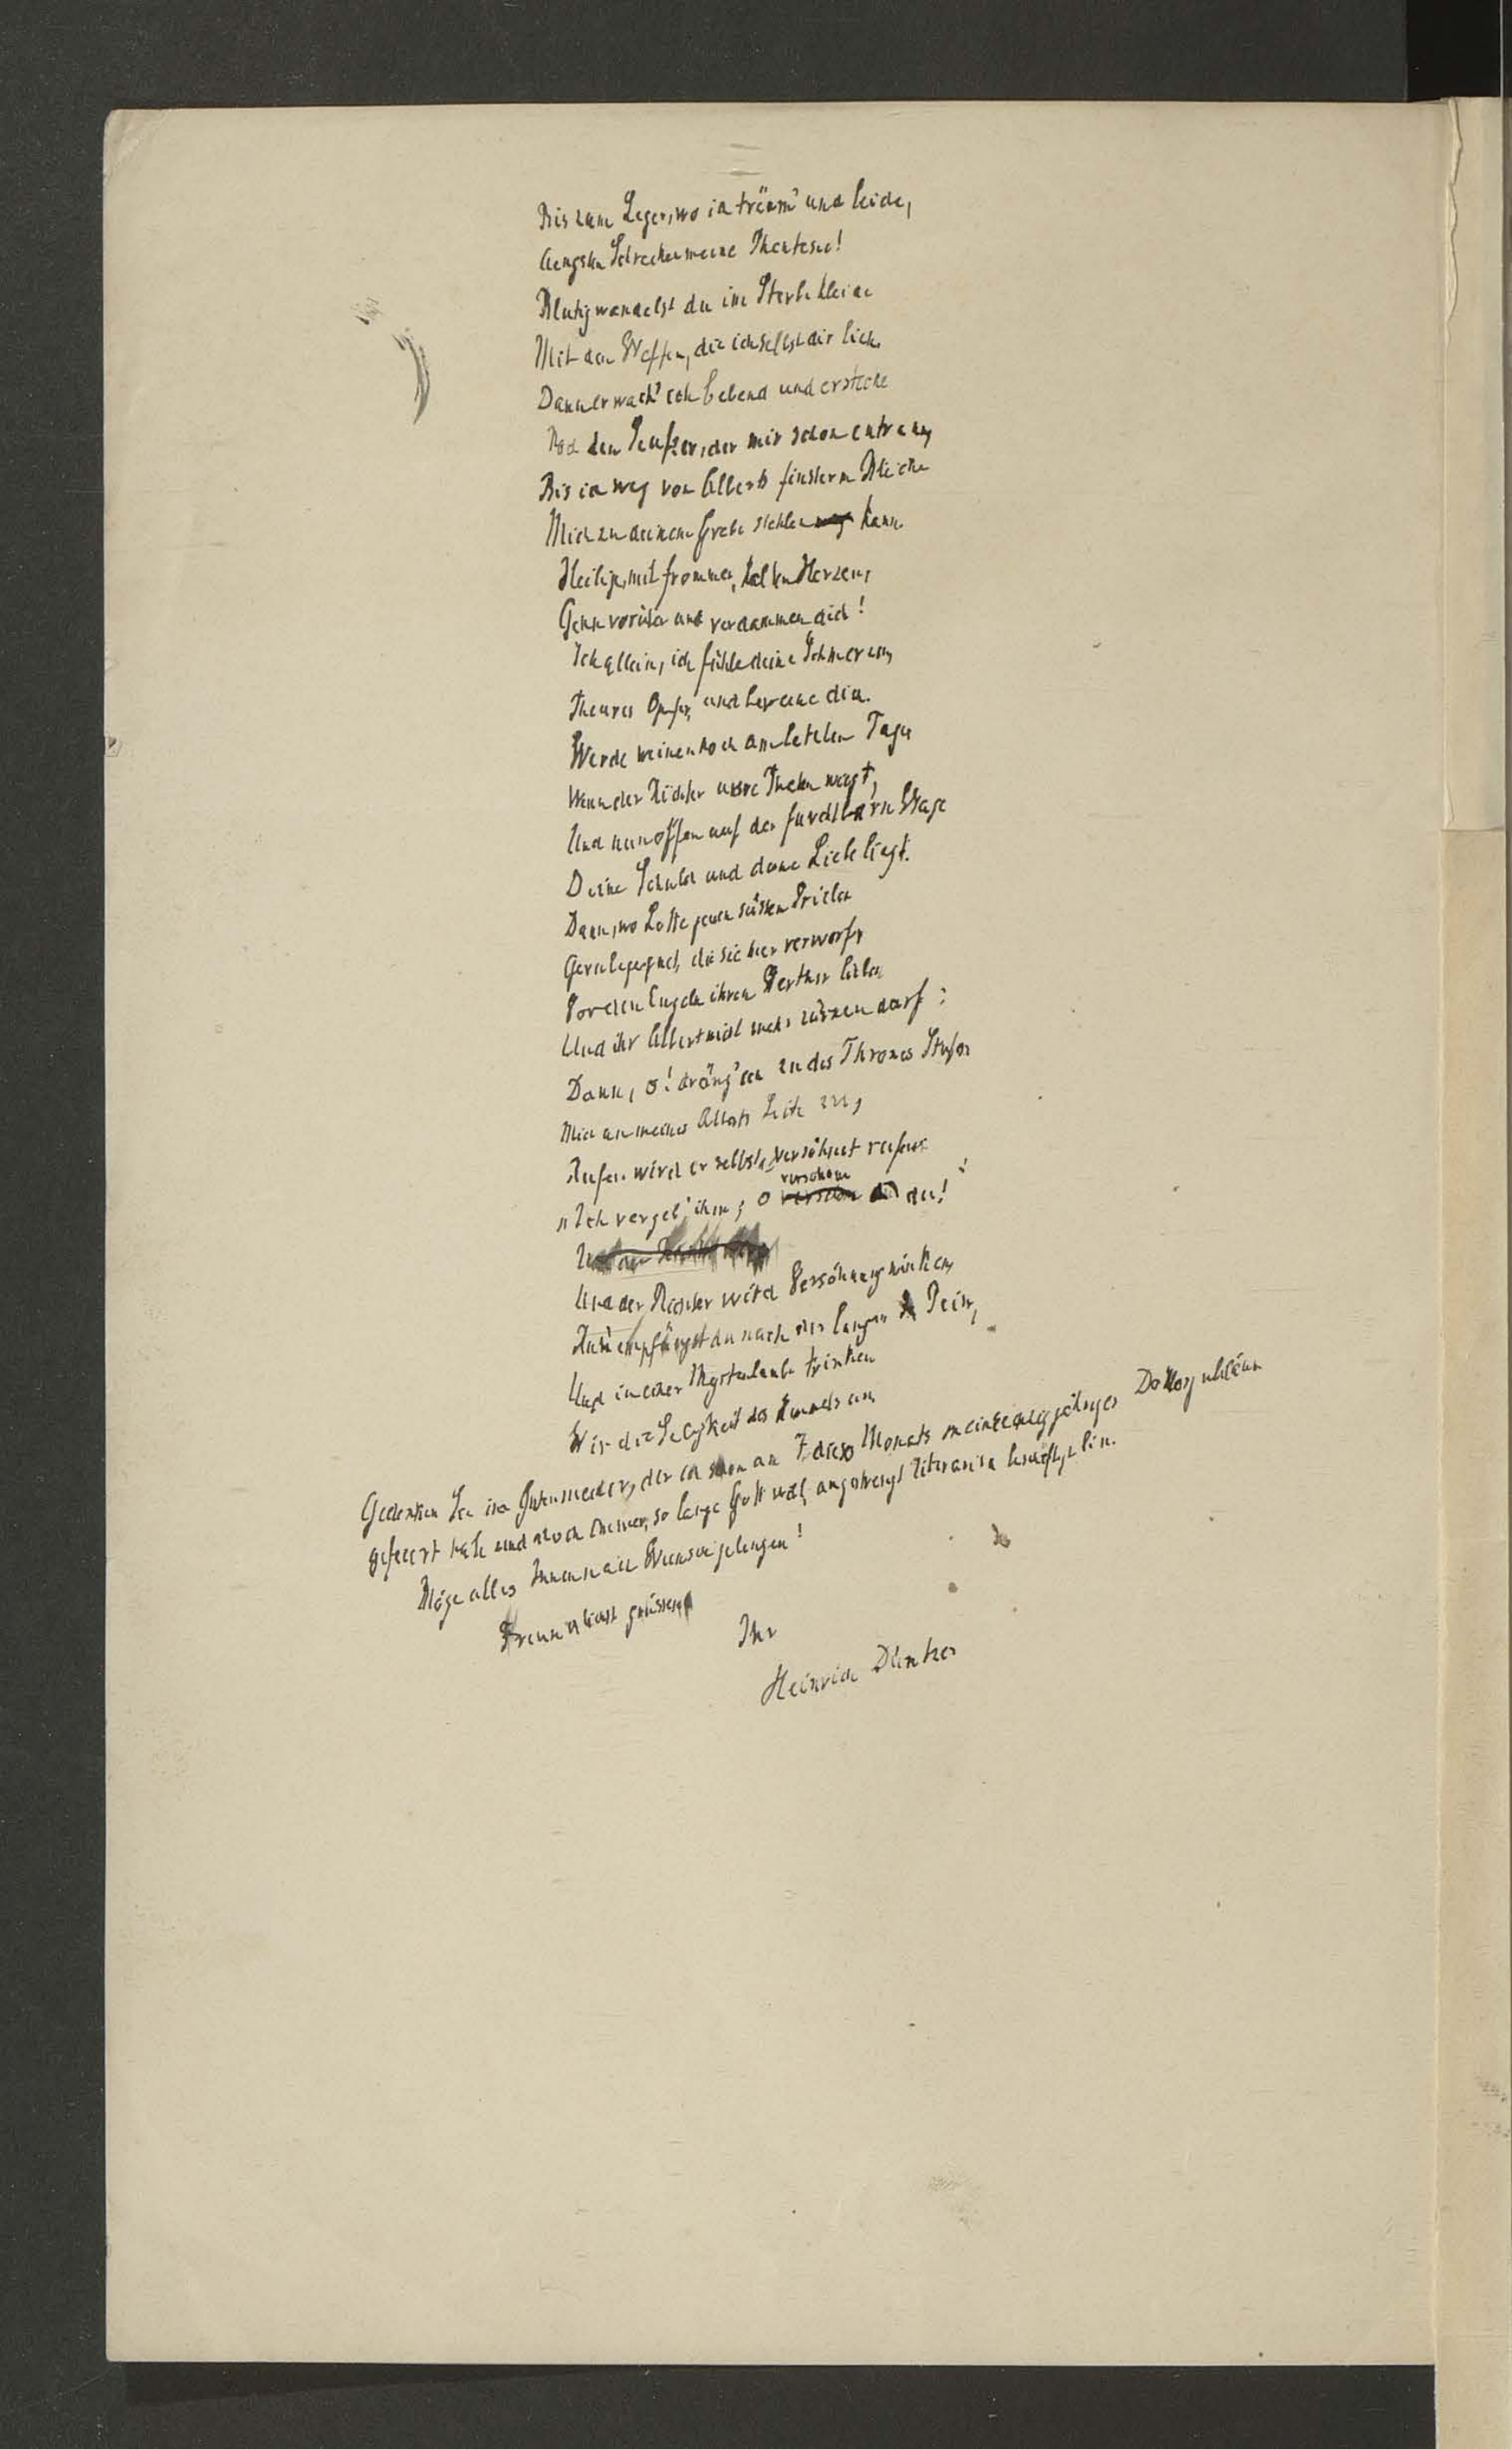 Bis zum Lager, wo ich träum' und leide,
Aengsten Schrecken meine Phantasie!
Blutig wandelst du im Sterbekleide
Mit den Waffen, die ich selbst dir lieh.
Dann erwach' ich bebend und ersticke
Noch den Seufzer, der mir schon entrann,
Bis ich weg von Alberts finsterm Blicke
Mich zu deinem Grabe stehlen kann.
Heilige, mit frommen, kalten Herzen,
Gehn vorüber und verdammen dich!
Ich allein, ich fühle deine Schmerzen,
Theures Opfer, und beweine dich.
Werde weinen noch am letzten Tage
Wenn der Richter unsre Thaten wiegt,
Und nun offen auf der furchtbarn Wage
Deine Schuld und deine Liebe liegt.
Dann, wo Lotte jenen süssen Trieben
Gern begegnet, die sie hier verwarf,
Vor den Engeln ihren Werther lieben
Und ihr Albert nicht mehr zürnen darf:
Dann, o! dräng' ich zu des Thrones Stufen
Mich an meines Alberts Seite zu,
Rufen wird er selbst, versöhnet rufen:
„Ich vergeb' ihm, o verschone du!
Und der Richter wird Verschonung winken,
Ruh empfängst du nach der langen Pein,
Und in einer Myrtenlaube trinken
Wir die Seligkeit des Himmels ein.
Gedenken Sie , der ich schon am 7. dieses Monats mein jähriges Doktorjubiläum
gefeiert habe und noch immer, so lange Gott will, angestrengt literarisch beschäftigt bin.
Möge alles Ihnen nach Wunsche gelingen!
Freundlichst grüssend
Ihr
Heinrich Düntzer